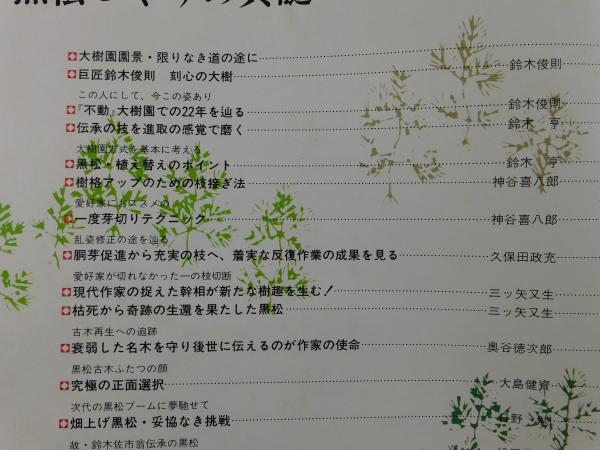 大樹園園景・限りなき道の途に 鈴木俊則
巨匠鈴木俊則 刻心の大樹
この人にして、今この姿あり
『不動』大樹園での22年を辿る 鈴木俊則
伝承の技を進取の感覚で磨く 鈴木 亨
大樹園方式を基本に考える
黒松・植え替えのポイント 鈴木 亨
樹格アップのための枝接ぎ法 神谷喜八郎
愛好家におススメの
一度芽切りテクニック 神谷喜八郎
乱姿修正の途を辿る
胴芽促進から充実の枝へ、着実な反復作業の成果を見る 久保田政充
愛好家が切れなかった一の枝切断
現代作家の捉えた幹相が新たな樹趣を生む! 三ッ矢又生
枯死から奇跡の生還を果たした黒松 三ッ矢又生
古木再生への追跡
衰弱した名木を守り後世に伝えるのが作家の使命 奥谷徳次郎
黒松古木ふたつの顔
究極の正面選択 大島健資
次代の黒松ブームに夢馳せて
畑上げ黒松・妥協なき挑戦
故・鈴木佐市翁伝承の黒松